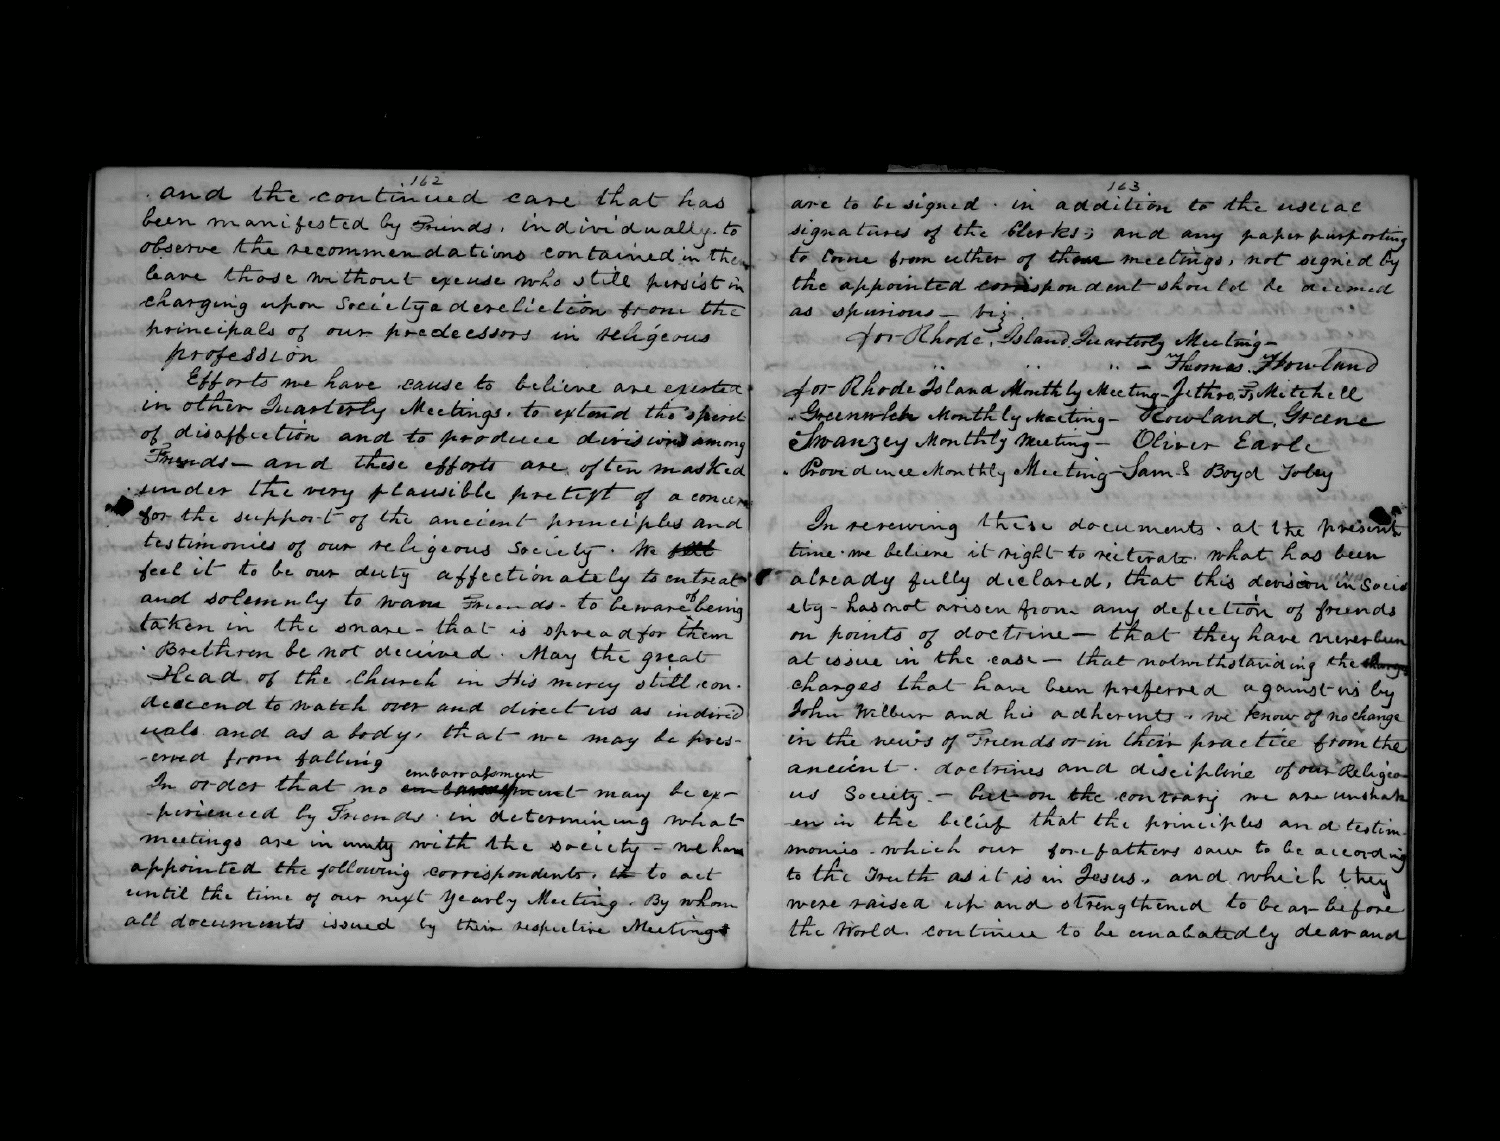 162
and the continued care that has
been manifested by Friends, individually to
observe the recommendations contained in them
leave those without excuse who still persist in
charging upon Society a dereliction from the
principals of our predecessors in religeous
profession
Efforts we have cause to believe are exerted
in other Quarterly Meetings, to extend the spirit
of disaffection and to produce divisions among
Friends— and these efforts are often masked
under the very plausible pretext of a concern
for the support of the ancient principles and
testimonies of our religeous Society. We
feel it to be our duty affectionately to entreat
and solemnly to warn Friends - to beware of being
taken in the snare - that is spread for them
Brethren be not decived. May the great
Head of the Church in His mercy still con-
descend to watch over and direct us as individ
uals and as a body, that we may be pres-
-erved from falling
In order that no embarrassment may be ex-
-perienced by Friends in determining what
meetings are in unity with the society - we have
appointed the following correspondents, to act
until the time of our next Yearly Meeting. By whom
all documents issued by their respective Meetings
163
are to be signed in addition to the usual
signatures of the Clerks; and any paper purporting
to Come from either of these meetings, not signed by
the appointed correspondent should be deemed
as spurious— viz
for Rhode Island Quarterly Meeting—
" " " — Thomas Howland
for Rhode Island Monthly Meeting— Jethro F. Mitchell
" Greenwich Monthly Meeting— Rowland Greene
Swanzey Monthly Meeting— Oliver Earle
" Providence Monthly Meeting— Saml Boyd Tobey
In reviewing these documents at the present
time we believe it right to reiterate what has been
already fully declared, that this devision in Soci
ety - has not arisen from any defection of friends
on points of doctrine— that they have never been
at issue in the case— that notwithstanding the
charges that have been preferred against us by
John Wilbur and his adherents, we know of no change
in the views of Friends or in their practice from the
ancient doctrines and discipline of our Religeo
us Society.— but on the contrary we are unshak
en in the belief that the principles and testim-
monies which our forefathers saw to be according
to the Truth as it is in Jesus, and which they
were raised up and strengthened to bear before
the World continue to be unabatedly dear and